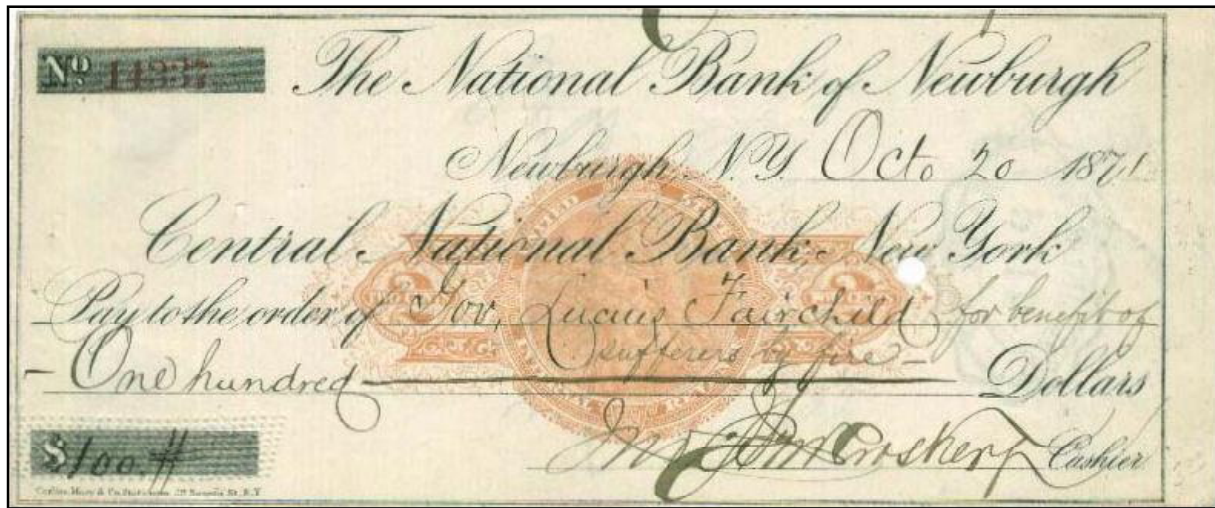 No 14337
The National Bank of Newburgh
Newburgh, N.Y. Oct. 20 1871
Central National Bank New York
Pay to the order of Gov. Lucius Fairchild for benefit of
sufferers by fire
One hundred Dollars
UNITED
Cashier
$100.